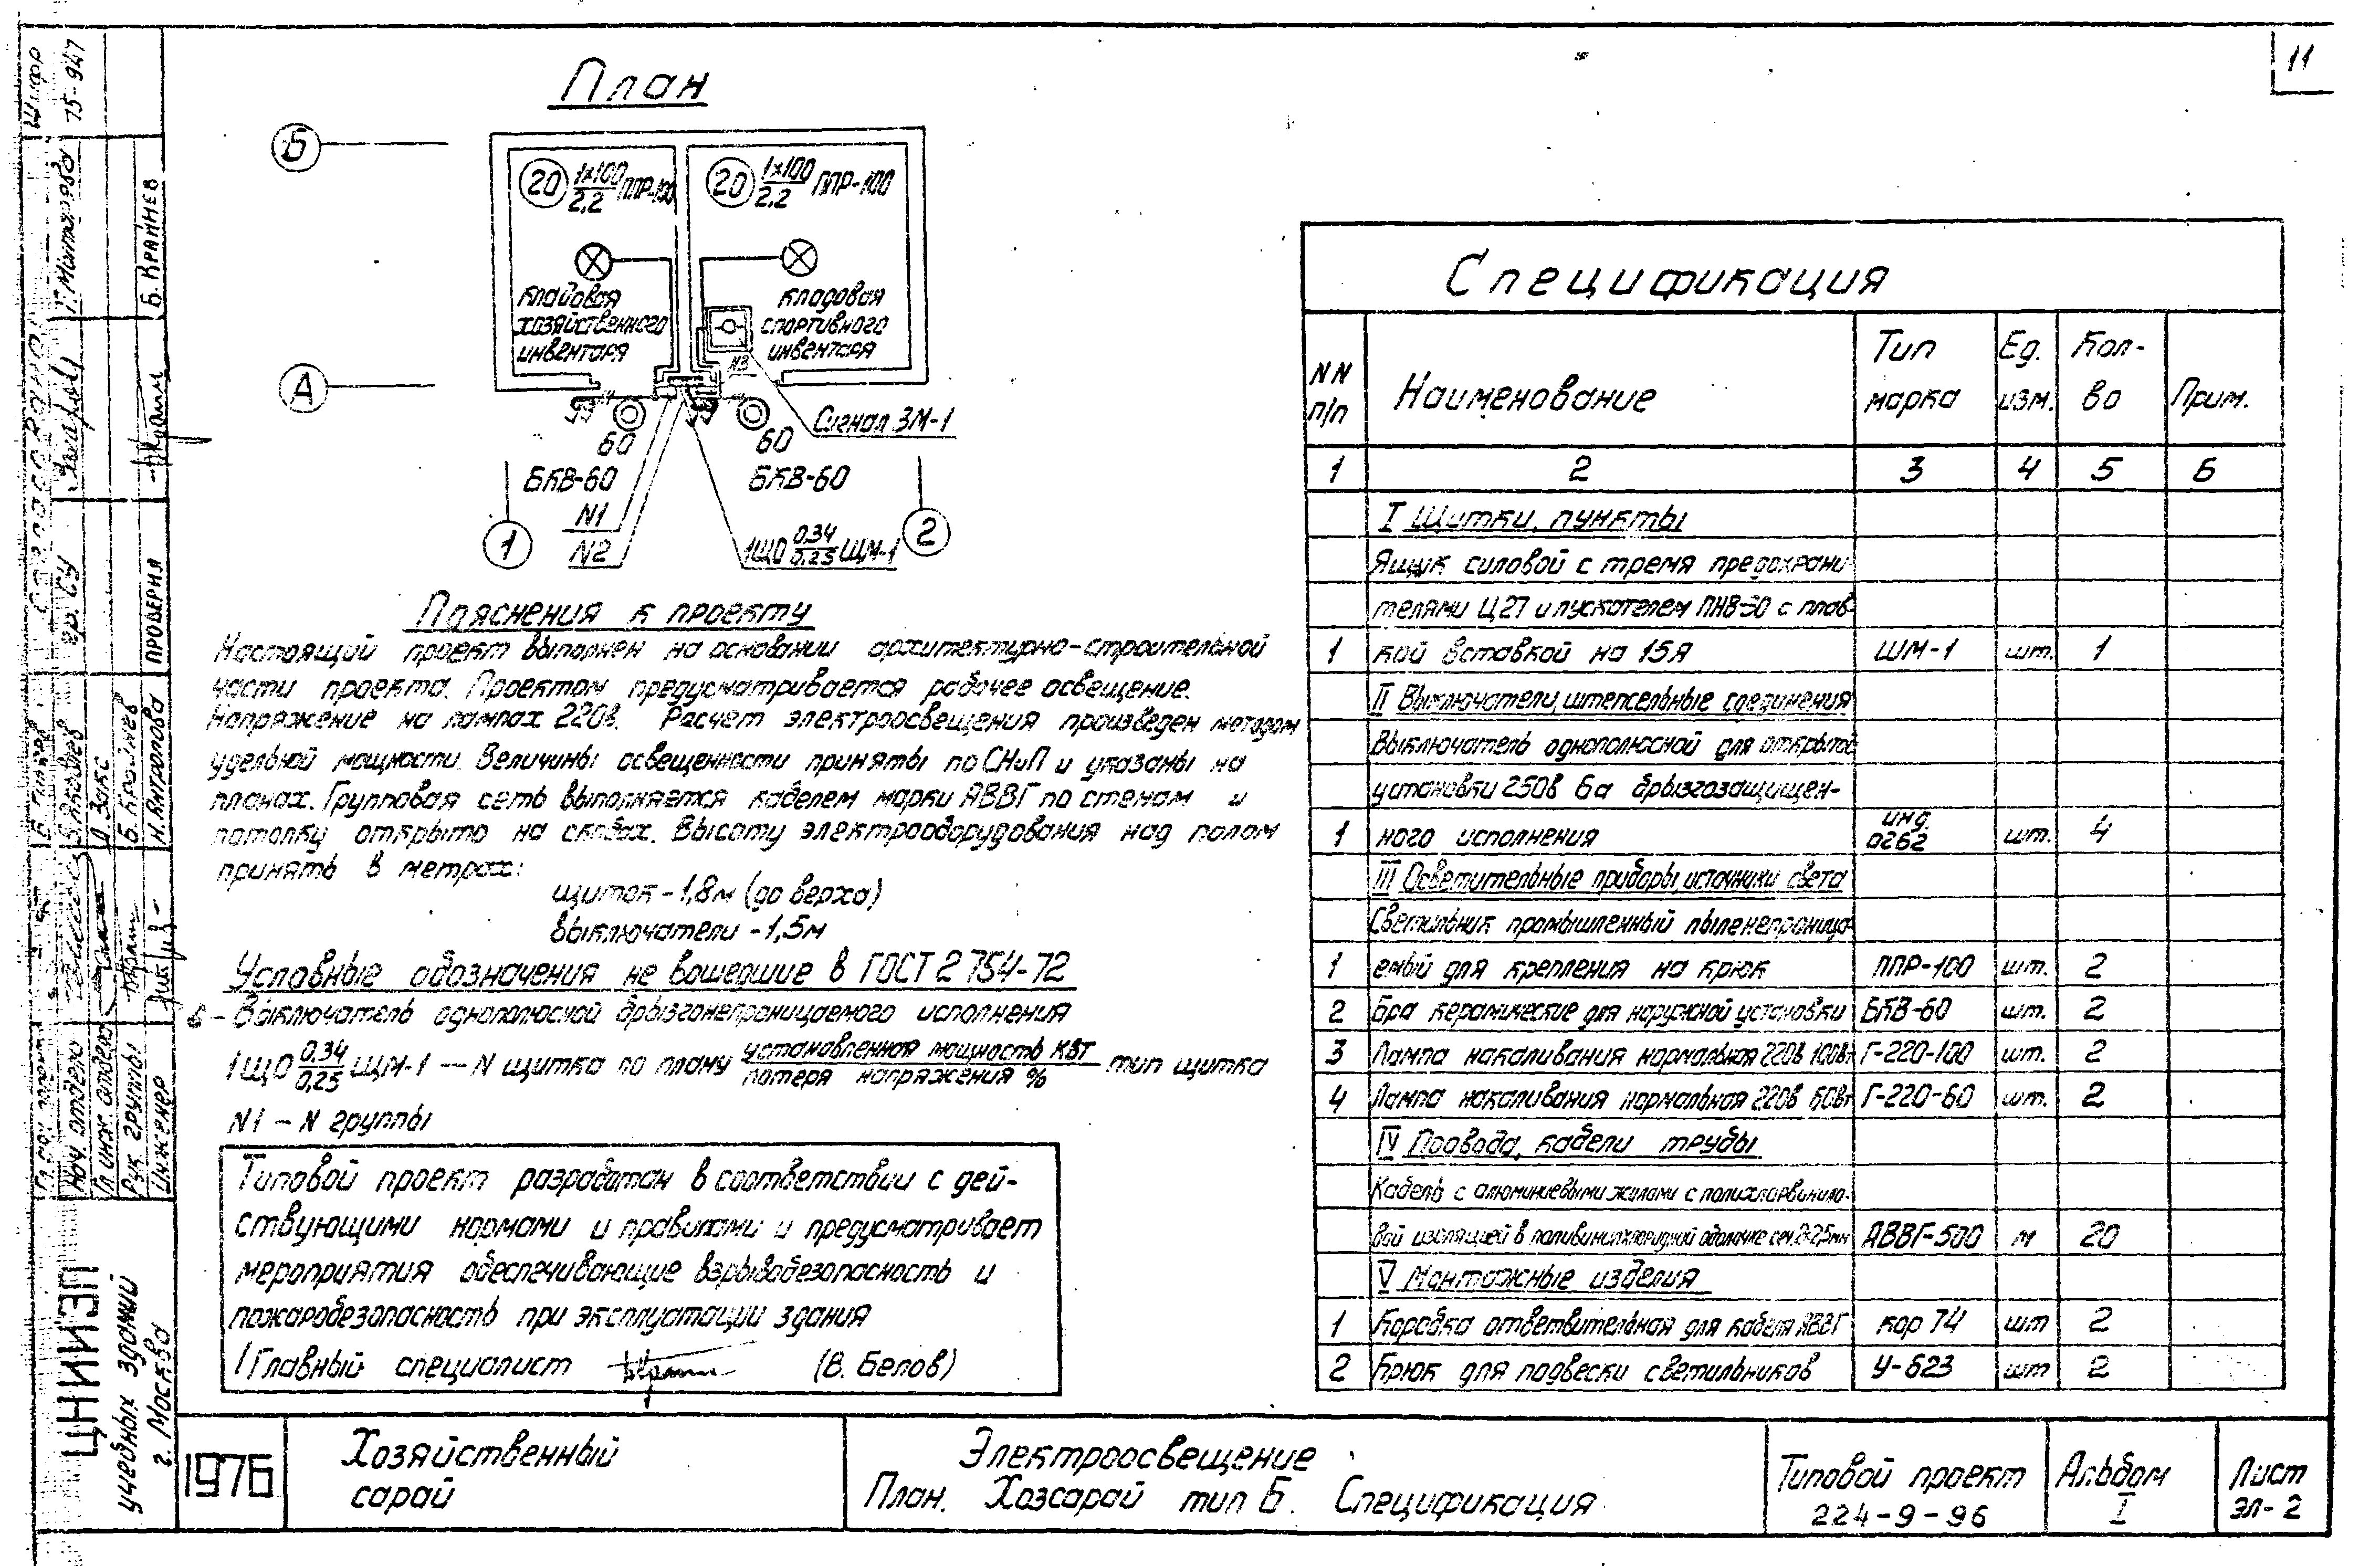 11
План
Б
20 1х100 2,2 ППР-100
20 1х100 2,2 ППР-100
кладовая
хозяйственного
инвентаря
кладовая
спортивного
инвентаря
А
Сигнал ЗМ-1
60
БКВ-60
60
БКВ-60
N1
N2
1
2
1ЩО 0,34 0,25 ЩМ-1
Пояснения к проекту
Настоящий проект выполнен на основании архитектурно-строительной
части проекта. Проектом предусматривается рабочее освещение.
Напряжение на лампах 220в. Расчет электроосвещения произведен методом
удельной мощности. Величины освещенности приняты по СНиП и указаны на
планах. Групповая сеть выполняется кабелем марки АВВГ по стенам и
потолку открыто на скобах. Высоту электрооборудования над полом
принять в метрах:
щиток - 1,8м (до верха)
выключатели - 1,5м
Условные обозначения не вошедшие в ГОСТ 2 754-72
- Выключатель однополюсной брызгонепроницаемого исполнения
1ЩО 0,34 0,25 ЩМ-1 — N щитка по плану установленная мощность квт потеря напряжения % тип щитка
N1 - N группы
Типовой проект разработан в соответствии с дей-
ствующими нормами и правилами и предусматривает
мероприятия обеспечивающие взрывобезопасность и
пожаробезопасность при эксплуатации здания
Главный специалист (В. Белов)
Спецификация
NN п/п Наименование Тип марка Ед. изм. Кол-во Прим.
1 2 3 4 5 6
I Щитки, пункты
Ящик силовой с тремя предохрани
телями Ц27 и пускателем ПНВ-30 с плав-
1 кой вставкой на 15А ЩМ-1 шт. 1
II Выключатели, штепсельные соединения
Выключатель однополюсной для открытой
установки 250в 6а брызгозащищен-
1 ного исполнения инд. 0262 шт. 4
III Осветительные приборы источники света
Светильник промышленный пыленепроница-
1 емый для крепления на крюк ППР-100 шт. 2
2 Бра керамические для наружной установки БКВ-60 шт. 2
3 Лампа накаливания нормальная 220в 100вт Г-220-100 шт. 2
4 Лампа накаливания нормальная 220в 60вт Г-220-60 шт. 2
IV Провода, кабели трубы
Кабель с алюминиевыми жилами с полихлорвинило-
вой изоляцией в поливинилхлоридной оболочке сеч. АВВГ-500 м 20
V Монтажные изделия
1 Коробка ответвительная для кабеля АВВГ кор 74 шт 2
2 Крюк для подвески светильников У-623 шт 2
1976
Хозяйственный
сарай
Электроосвещение
План. Хозсарай тип Б. Спецификация
Типовой проект
224-9-96
Альбом
I
Лист
эл-2
Шифр 75-947
Т. Монтахова
Б. Крайнев
ПРОВЕРИЛ
Нач. отдела
Гл. инж. отдела Д Закс
Рук. группы Б. Крайнев
Инженер Н. Антропова
ЦНИИЭП
учебных зданий
г. Москва